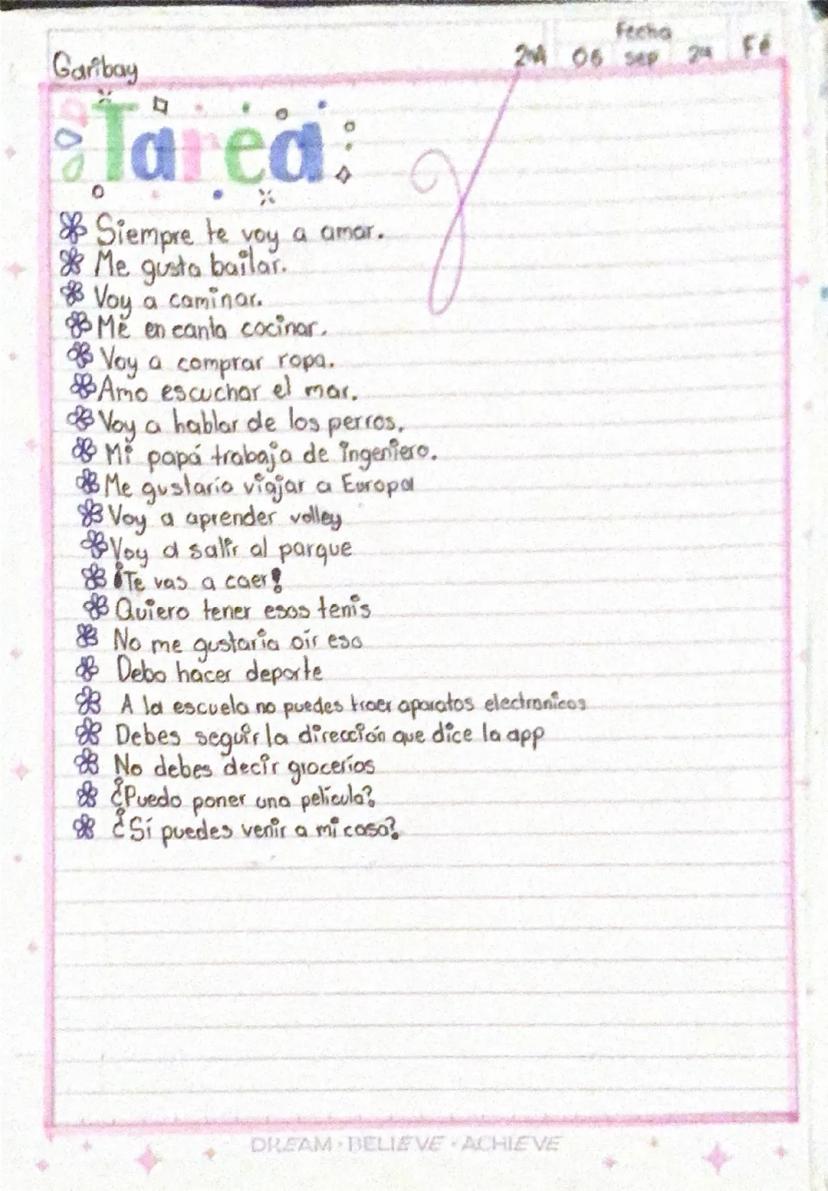 Fecha
Garibay 2ºA 06 sep 24 Fé
Tarea
Siempre te voy a amar.
Me gusta bailar.
Voy a caminar.
Me encanta cocinar.
Voy a comprar ropa.
Amo escuchar el mar.
Voy a hablar de los perros.
Mi papá trabaja de ingeniero.
Me gustaría viajar a Europa
Voy a aprender volley
Voy a salir al parque
¡Te vas a caer!
Quiero tener esos tenis
No me gustaria oír eso
Debo hacer deporte
A la escuela no puedes traer aparatos electronicos
Debes seguir la dirección que dice la app
No debes decir grocerías
¿Puedo poner una película?
¿Sí puedes venir a mi casa?
DREAM · BELIEVE · ACHIEVE